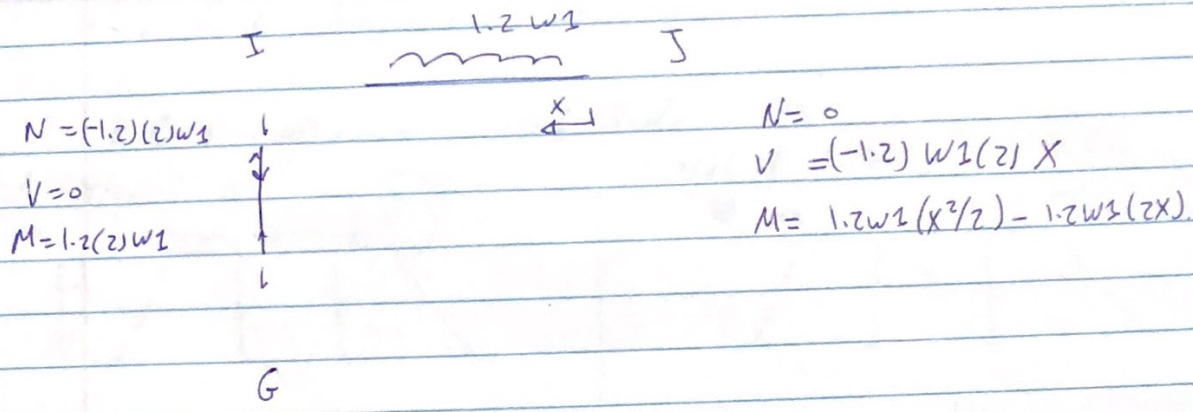 1.2 w1
I J
x
N = (-1.2)(2)w1
V=0
M=1.2(2)w1
N= 0
V =(-1.2) w1(2) X
M= 1.2w1(x²/2) - 1.2w1(2x).
G